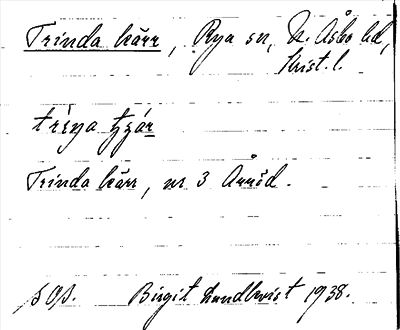 Trinda kärr, Rya sn, N. Åsbo hd,
Krist. l.
trina
Trinda kärr, nr 3 Årröd.
Birgit Lundkvist 1938.